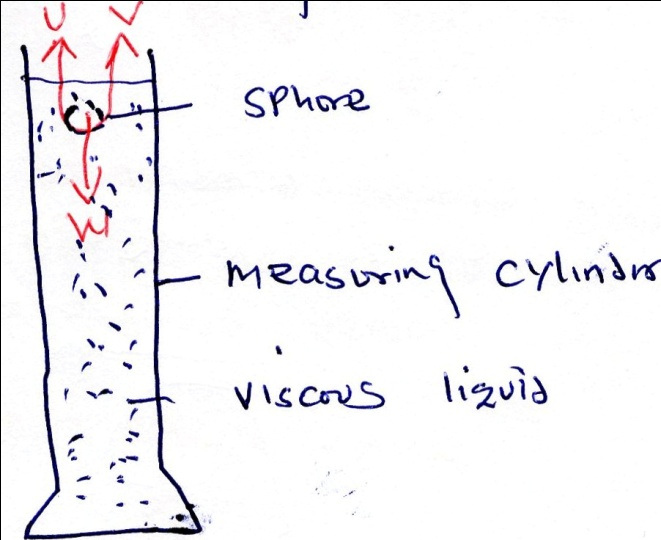 U V
sphore
W
measuring cylindr
viscous liquid